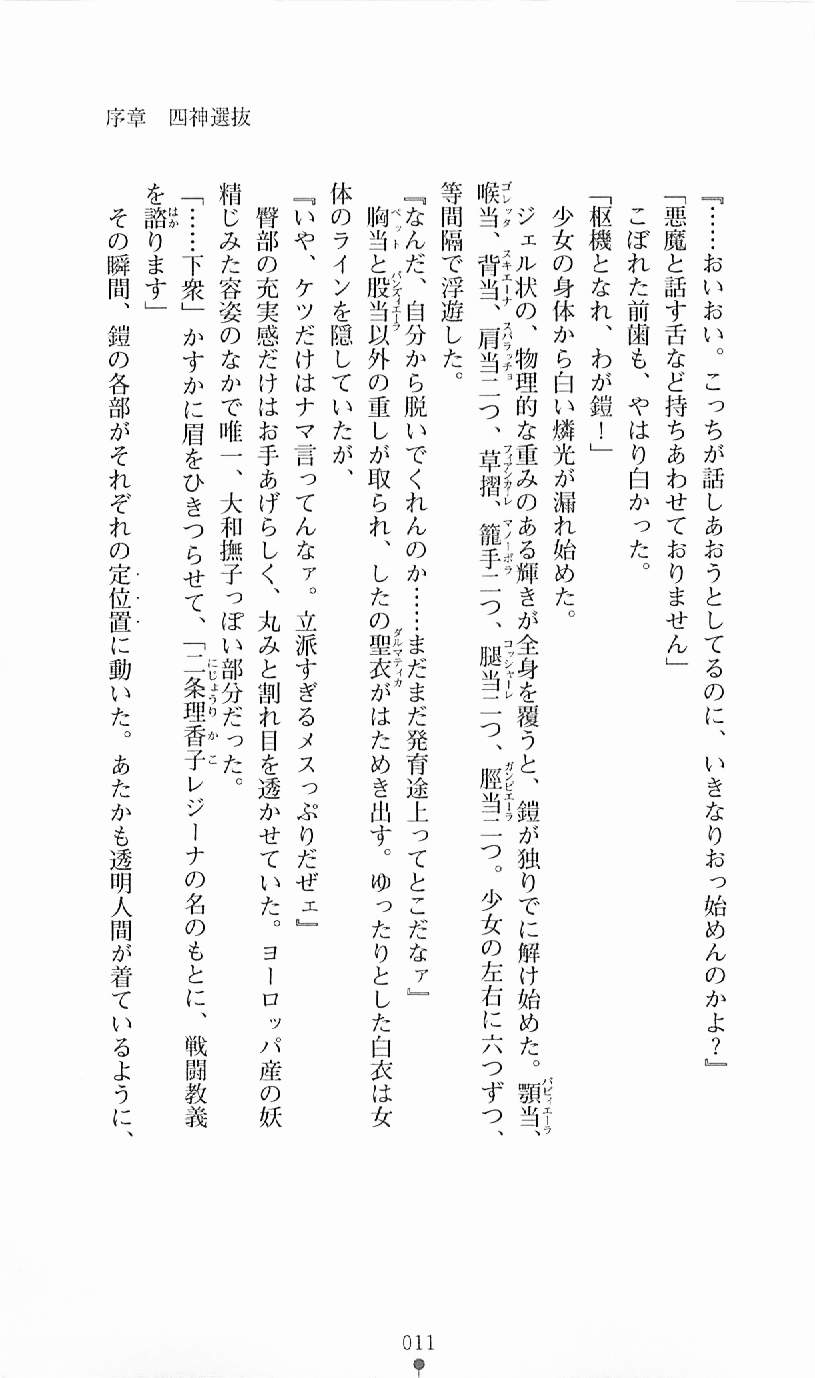 序章　四神選抜
『……おいおい。こっちが話しあおうとしてるのに、いきなりおっ始めんのかよ？』
「悪魔と話す舌など持ちあわせておりません」
　こぼれた前歯も、やはり白かった。
「枢機となれ、わが鎧！」
　少女の身体から白い燐光が漏れ始めた。
　ジェル状の、物理的な重みのある輝きが全身を覆うと、鎧が独りでに解け始めた。顎当、
喉当、背当、肩当二つ、草摺、籠手二つ、腿当二つ、脛当二つ。少女の左右に六つずつ、
等間隔で浮遊した。
『なんだ、自分から脱いでくれんのか……まだまだ発育途上ってとこだなァ』
　胸当と股当以外の重しが取られ、したの聖衣がはためき出す。ゆったりとした白衣は女
体のラインを隠していたが、
『いや、ケツだけはナマ言ってんなァ。立派すぎるメスっぷりだぜェ』
　臀部の充実感だけはお手あげらしく、丸みと割れ目を透かせていた。ヨーロッパ産の妖
精じみた容姿のなかで唯一、大和撫子っぽい部分だった。
「……下衆」かすかに眉をひきつらせて、「二条理香子レジーナの名のもとに、戦闘教義
を諮ります」
　その瞬間、鎧の各部がそれぞれの定位置に動いた。あたかも透明人間が着ているように、
011